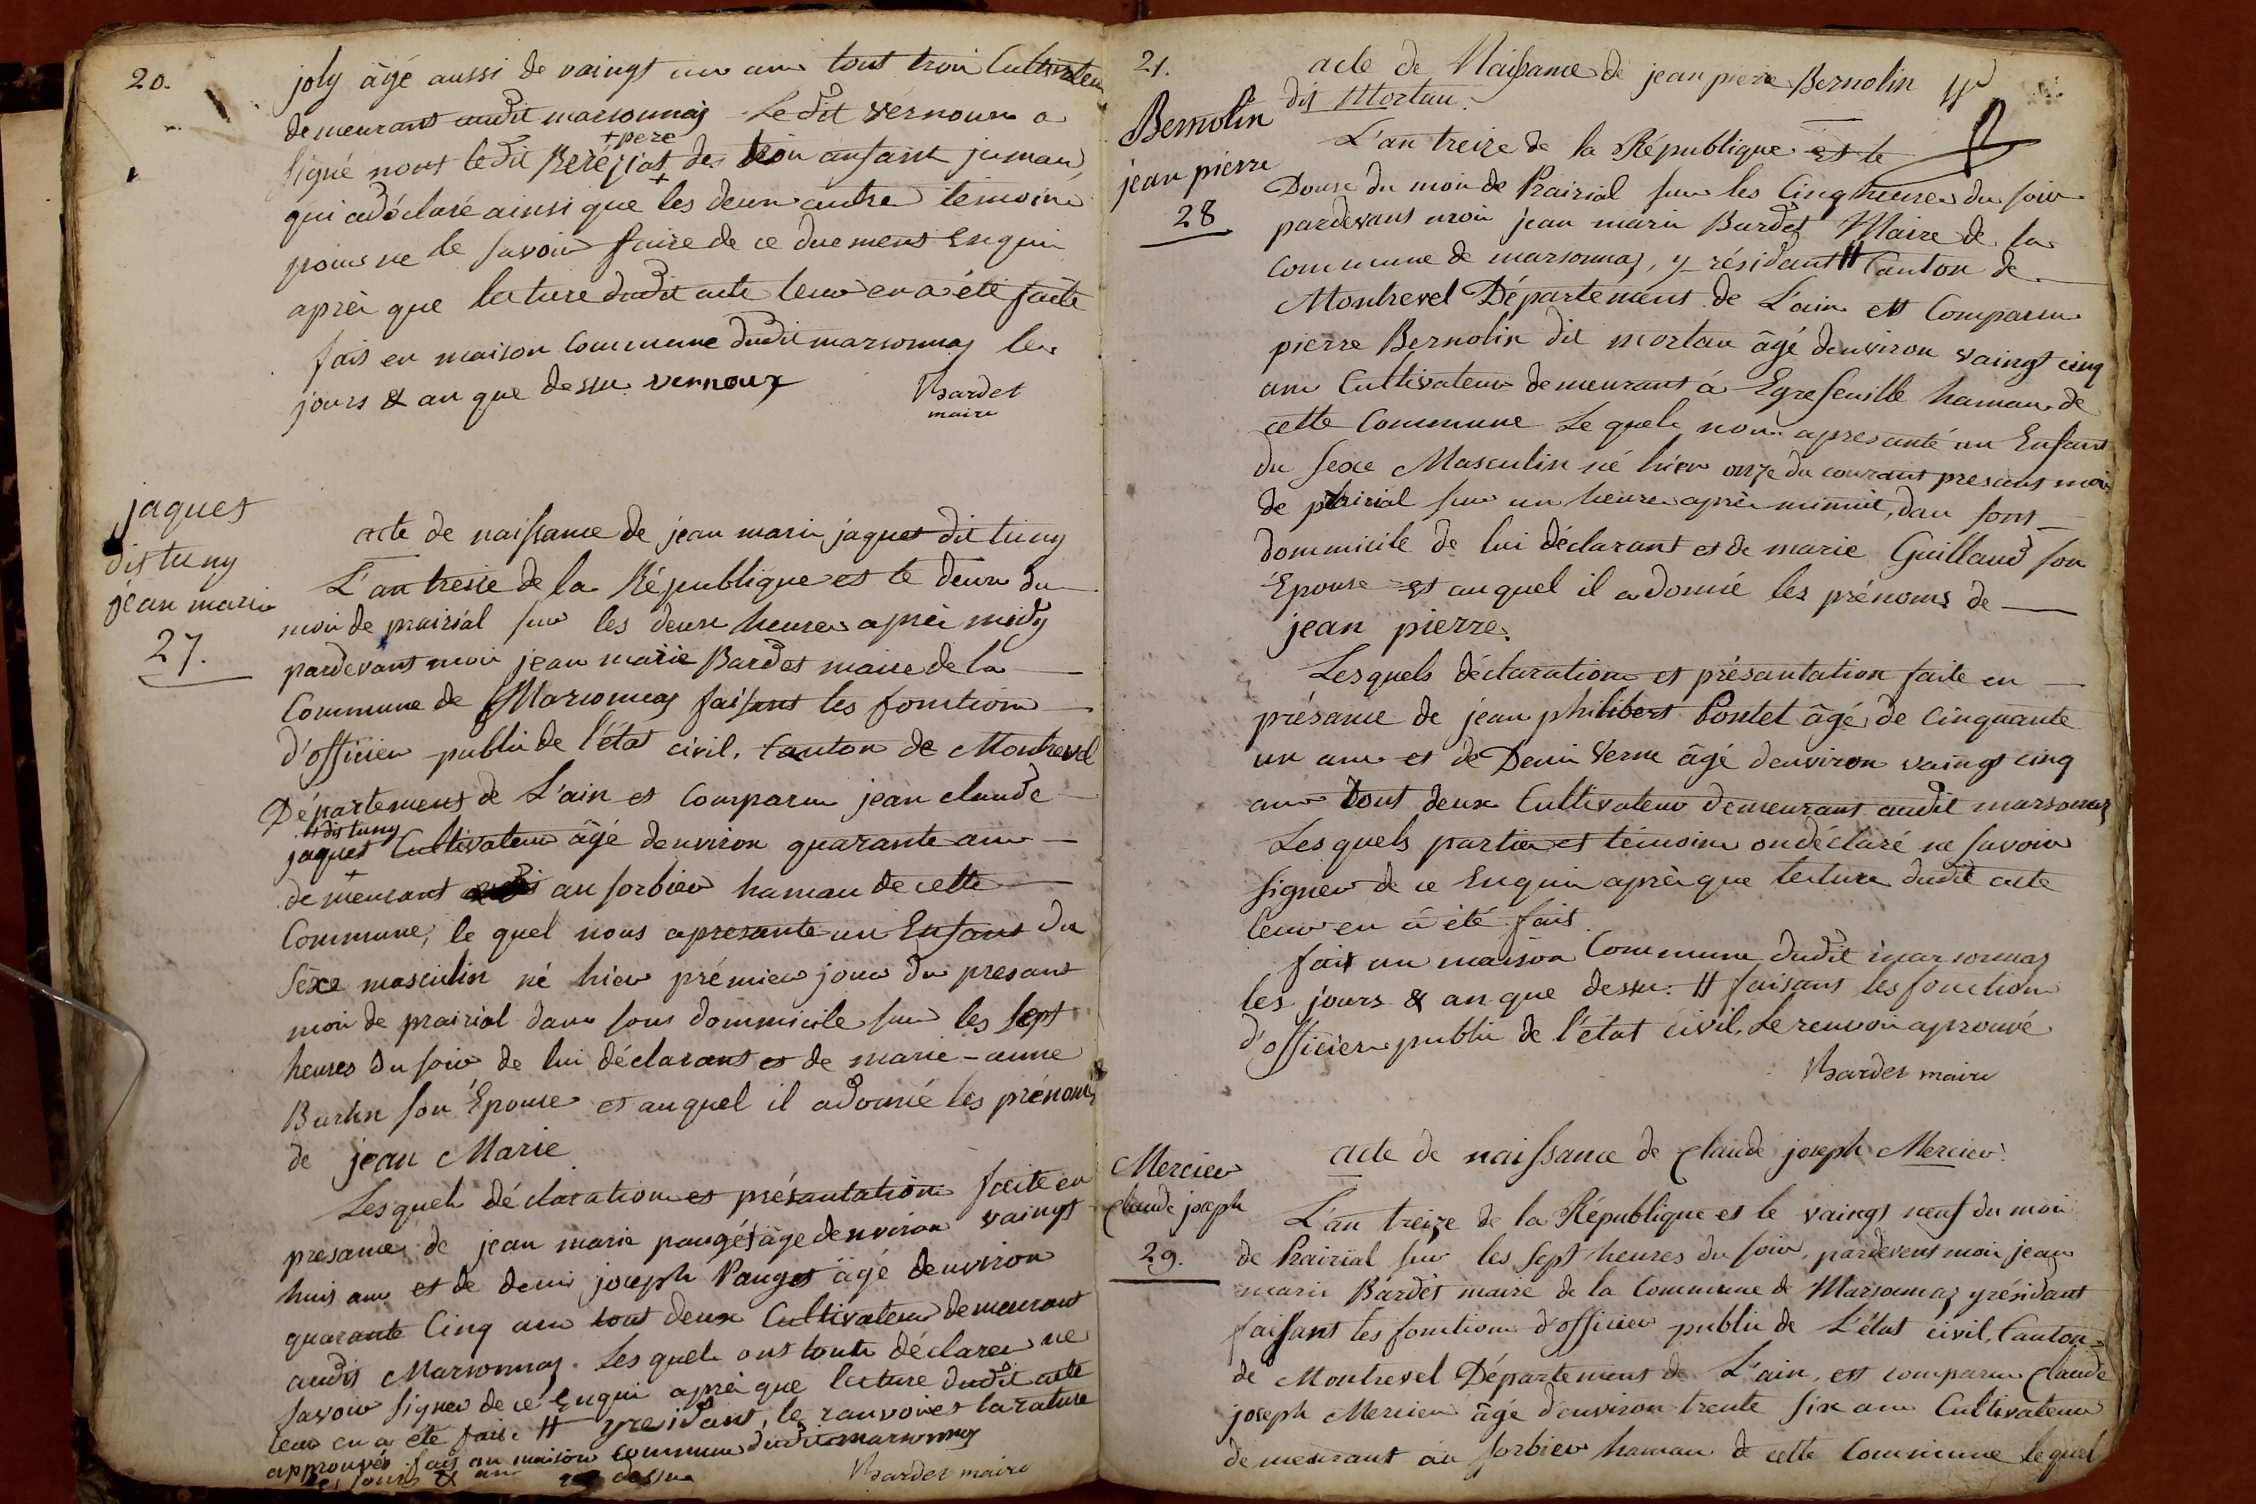 20.
joly âgé aussi de vaingt un ans tout trois Cultivateur
demeurant audit marsonnaz Le dit vernoux a
+ pere
signé nont ledit Beréziat + des trois anfant jumau,
qui adéclaré ainsi que les deux autre témoins
pour ne le savoir faire de ce duement Enquis
aprèi que lecture dudit acte leur en a été faite
fais en maison Commune dudit marsonnaz les
jours & an que dessu vernoux
Bardet
maire
jaquet
dit tuny
jean marie
27.
acte de naissance de jean marie jaquet dit tuny
L'an treise de la République et le deux du
moi de prairial sur les deux heures aprèi midy
pardevant moi jean marie Bardet maire de la
Commune de Marsonnaz faisant les fonction
d'officier public de l'état civil, Canton de Montrevel
Département de L'ain et Comparu jean claude
dit tuny
jaquet Cultivateur âgé denviron quarante ans
+
demeurant au sorbier hamau de cette
Commune, le quel nous apresanté un Enfant du
Sexe masculin né hier prémier jour du presant
moi de prairial dans sont dommicile sur les sept
heures du soir de lui déclarant et de marie-anne
Burtin son Épouse et auquel il adonné les prénoms
de jean Marie
Lesquels déclaration et présantation faite en
presance de jean marie pauget âge denviron vaingt
huit ans et de deni joseph Pauget âgé denviron
quarante Cinq ans tout deux Cultivateur demeurant
audit Marsonnaz. Lesquels ont toute déclarer ne
savoir signer de ce Enqui aprèi que lecture dudit acte
leur en a été fait. H yresidant, le ranvoi et la rature
approuvés fait an maison commune dudit marsonnaz
les jours & an que dessu
Bardet maire
21.
acte de Naissance de jean pierre Bernolin
dit Mortau.
Bernolin
jean pierre
28
L'an treize de la République et le
Douse du moi de Prairial sur les Cinq heures du soir
pardevant moi jean marie Bardet Maire de la
Commune de marsonnaz, y résidant H Canton de
Montrevel Département de L'ain est Comparu
pierre Bernolin dit mortau âgé denviron vaingt cinq
ans Cultivateur demeurant á Egrefeuille hamau de
cette Commune Le quel nous apresanté un Enfant
du sexe Masculin né hier onze du courant presant moi
de prairial sur un heure aprèi minuit, dan sont
dommicile de lui déclarant et de marie Guillaud son
Épouse et auquel il a donné les prénoms de
jean pierre.
Lesquels déclaration et présantation faite en
présance de jean philibert Pontet âgé de Cinquante
un ans et de Deni Verne âgé denviron vaingt cinq
ans tout deux Cultivateur demeurant audit marsonnaz
Lesquels partie et témoins ondéclaré ne savoir
signer de ce Enquis aprèi que lecture dudit acte
leur en â été fait
fait an maison Commune dudit marsonnaz
les jours & an que dessu. H faisant les fonction
d'officier publit de l'état civil, Le renvoi aprouvé
Bardet maire
Mercier
Claude joseph
29.
acte de naissance de Claude joseph Mercier.
L'an treize de la République et le vaingt neuf du moi
de Prairial sur les sept heures du soir, pardevent moi jean
marie Bardet maire de la Commune de Marsonnaz yrésidant
faisant les fonction d'officier public de L'état civil, Canton
de Montrevel Département de L'ain, est comparu Claude
joseph Mercier âgé denviron trente six ans Cultivateur
demeurant au sorbier hamau de cette Commune lequel